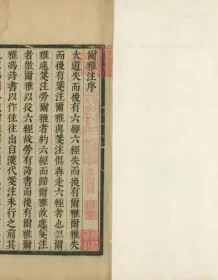 爾雅注序
大道失而後有六經六經失而後有爾雅爾雅失
而後有箋注爾雅與箋注俱奔走六經者也但爾
雅逸箋注勞爾雅者約六經而歸爾雅故逸箋注
者散爾雅以投六經故勞有詩書而後有爾雅爾
雅馮詩書以作往往出自漢代箋注未行之前其